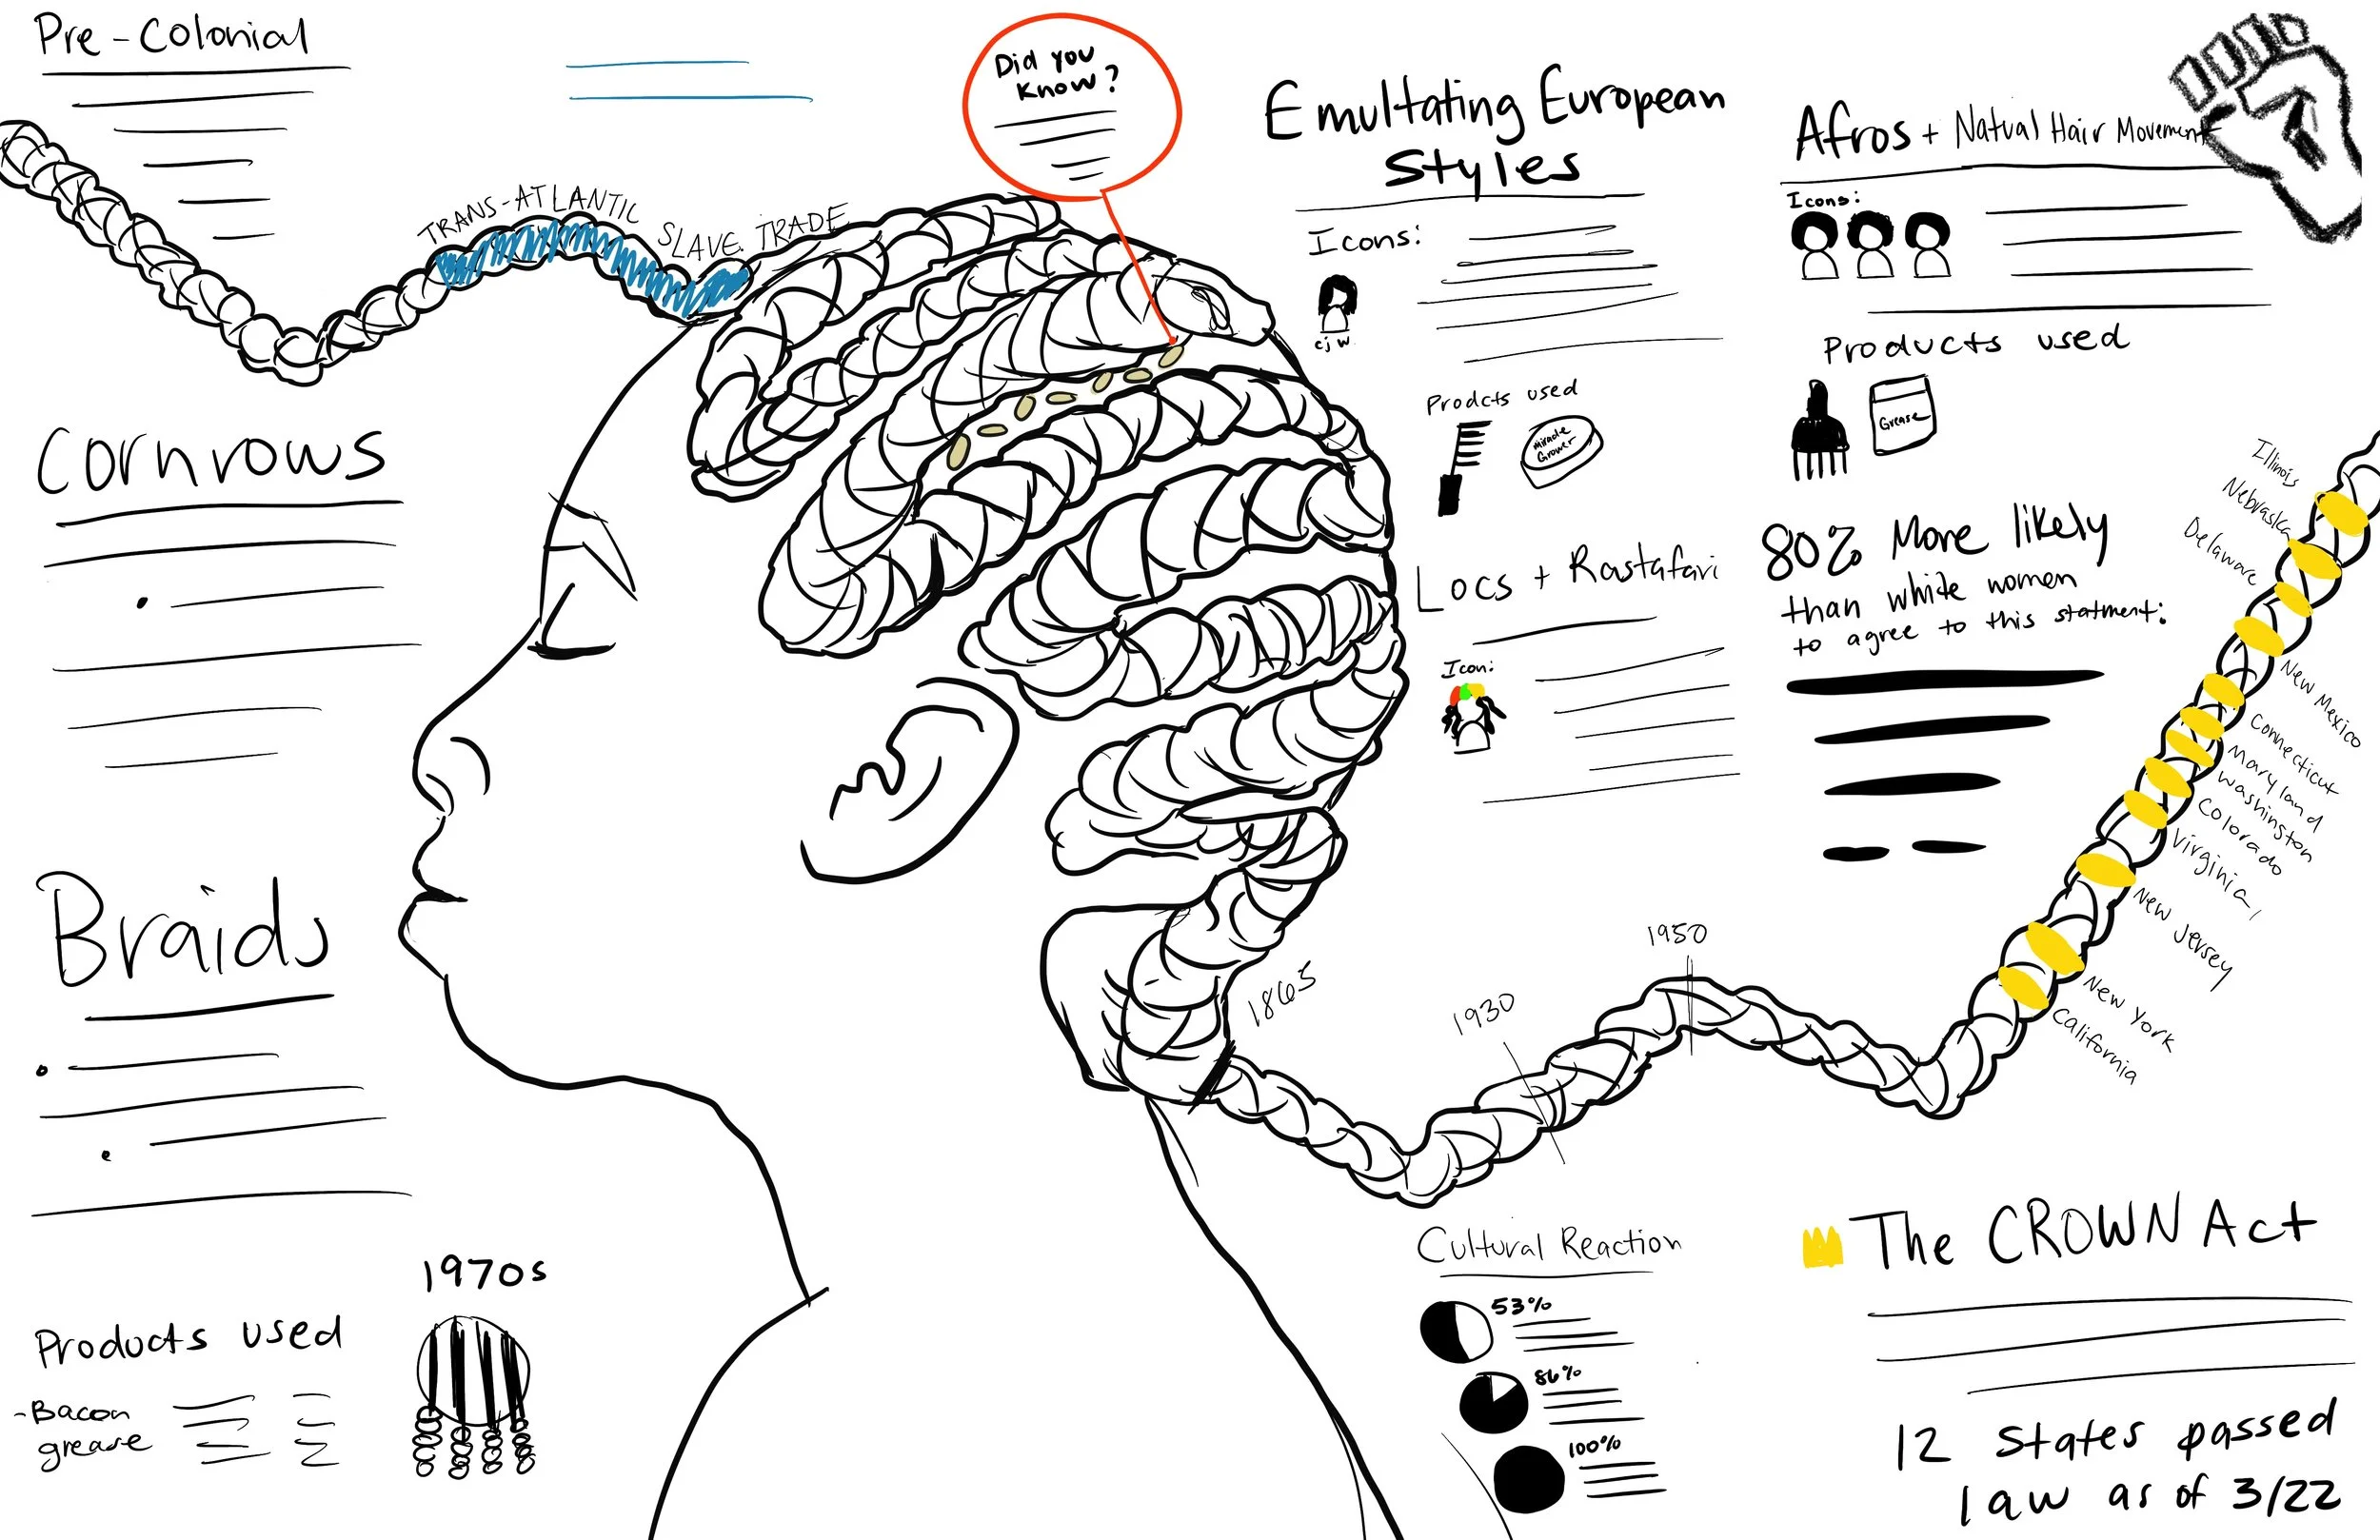 Pre-Colonial
TRANS-ATLANTIC SLAVE TRADE
Did you
Know?
Cornrows
Braids
1970s
Products used
-Bacon
grease
Emultating European
Styles
Icons:
cjw
Prodcts used
Miracle
Grower
Locs + Rastafari
Icon:
Afros + Natual Hair Movement
Icons:
Products used
Grease
80% More likely
than white women
to agree to this statment:
1865
1930
1950
Illinois
Nebraska
Delaware
New Mexico
Connecticut
Maryland
Washington
Colorado
Virginia
New Jersey
New York
California
Cultural Reaction
53%
86%
100%
The CROWN Act
12 States passed
law as of 3/22